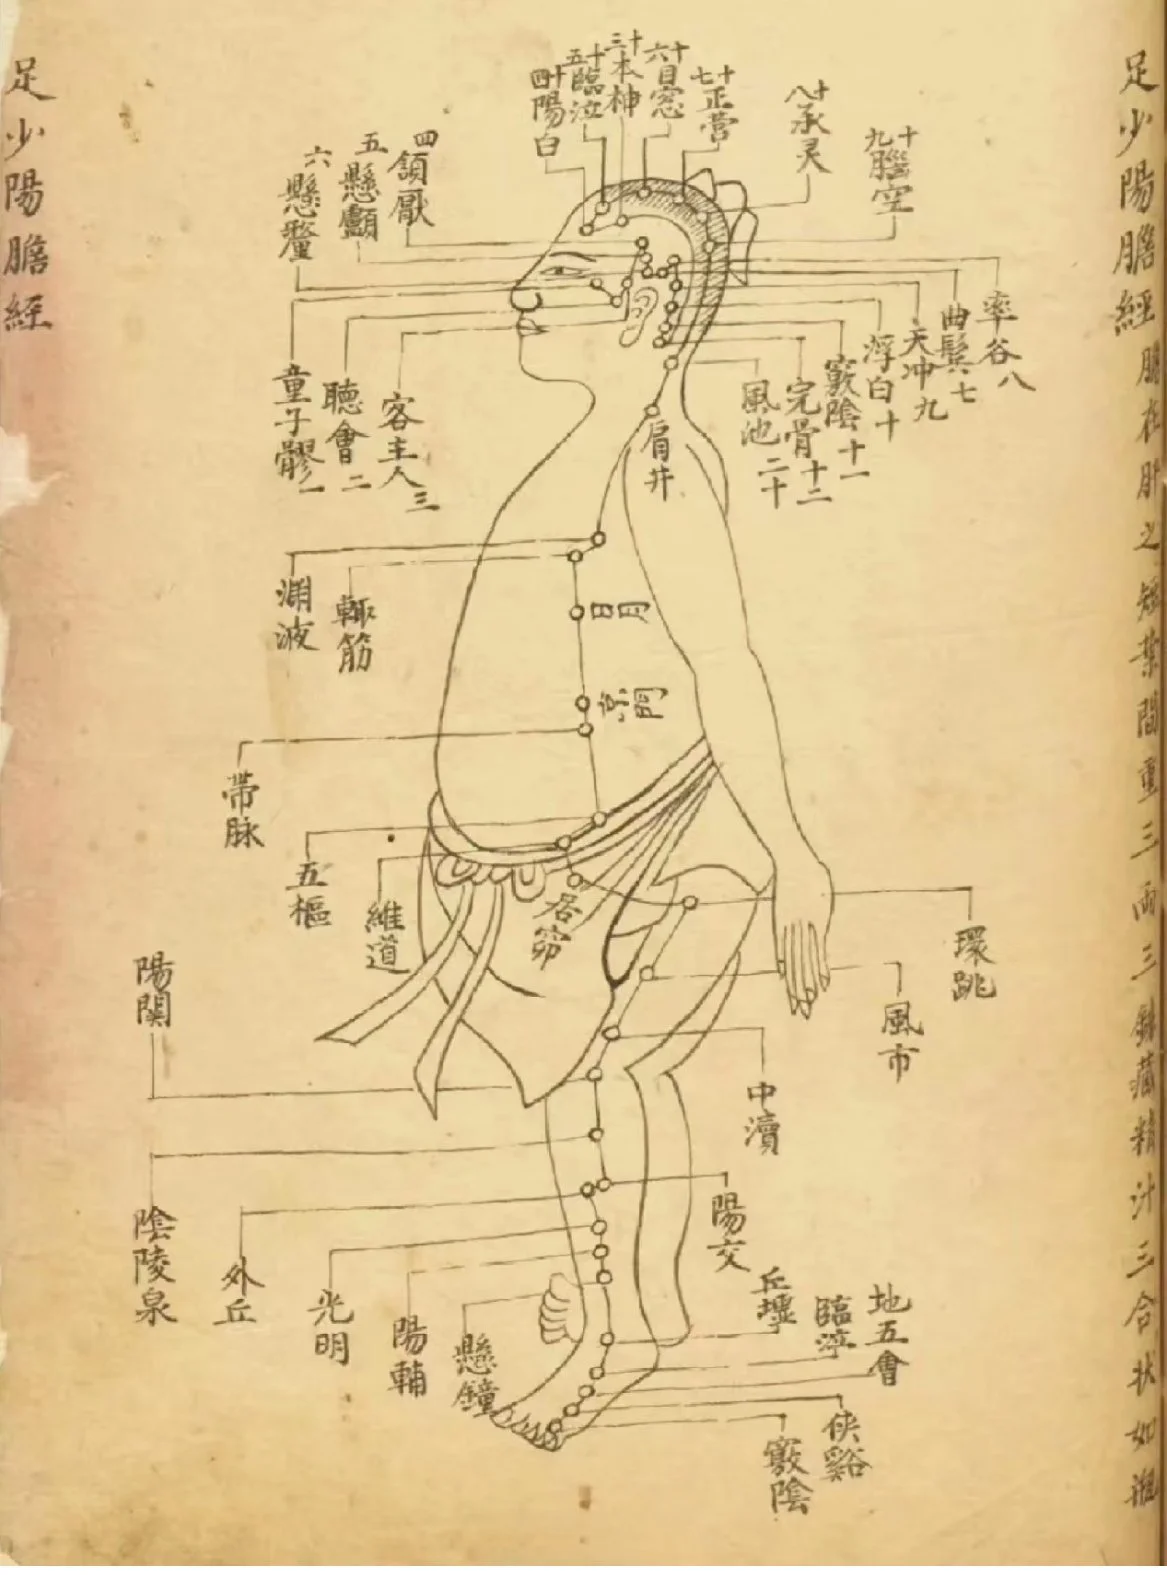 足少陽膽經 膽在肝之短葉間重三兩三銖藏精汁三合状如
十八承灵
十九腦空
十七正营
十六目窓
十三本神
十五臨泣
十四陽白
四頷厭
五懸顱
六懸釐
率谷八
曲鬂七
天冲九
浮白十
竅陰十一
完骨十二
風池二十
肩井
客主人三
聽會二
童子髎一
渊液
輒筋
日月
京門
帶脉
五樞
維道
居窌
環跳
風市
中瀆
陽関
陰陵泉
陽交
外丘
光明
陽輔
懸鐘
丘墟
臨泣
地五會
侠谿
竅陰
足少陽膽經